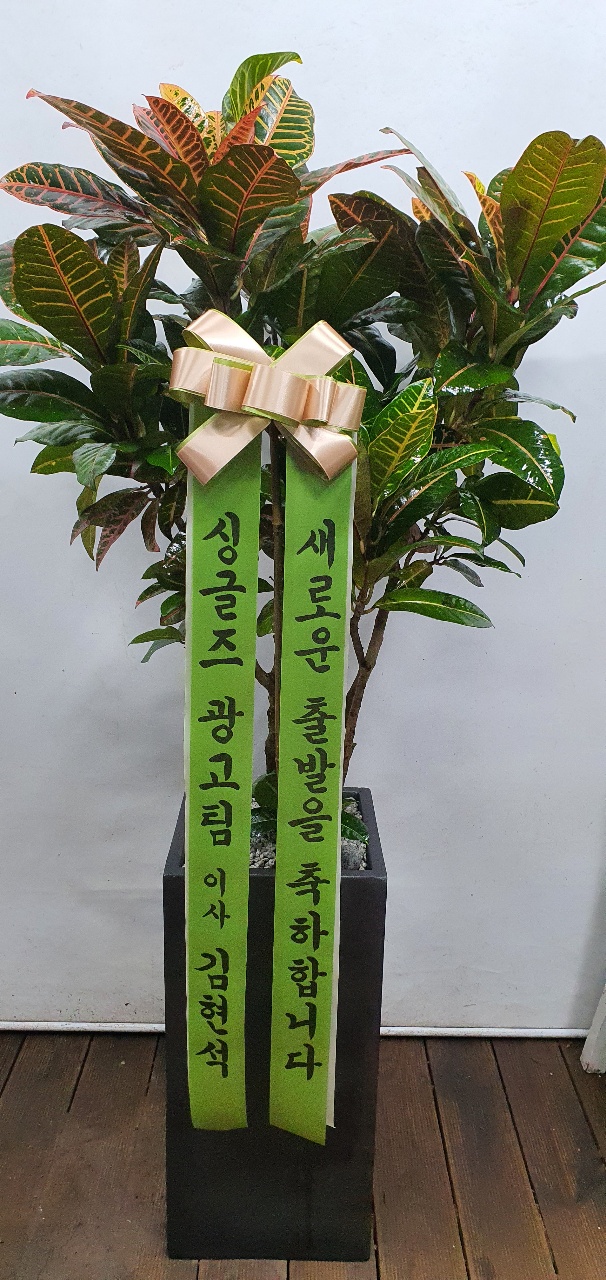 새로운 출발을 축하합니다
싱글즈 광고팀 이사 김현석